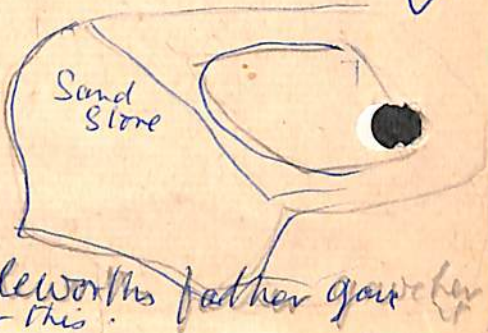 Sand
Stone
leworths father gave her
this.